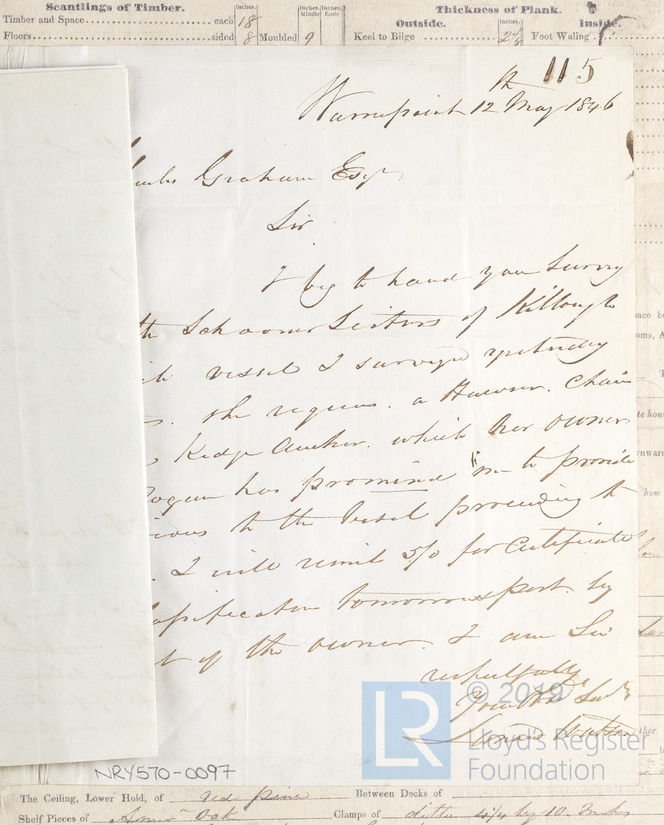 Scantlings of Timber.
Inches.
Inches. Middle
Inches. Ends
Thickness of Plank.
Outside.
Inches.
Inside.
Timber and Space each 18
Floors sided 8 Moulded 9
Keel to Bilge 2½
Foot Waling
115
Warrenpoint 12th May 1846
Graham Esqr
Sir
I beg to hand you Survey
Schooner Sisters of Killough
vessel I surveyed yesterday
She requires a Hawser. Chain
Kedge Anchor. which her owner
has promised me to provide
to the Vessel proceeding to
. I will remit 5/0 for Certificate
tomorrows post. by
of the owner. I am Sir
respectfully
Your
© 2019
LR
Lloyd's Register
Foundation
NRY570-0097
The Ceiling, Lower Hold, of Red Pine
Between Decks of
Shelf Pieces of Oak
Clamps of ditto by 10 Inches